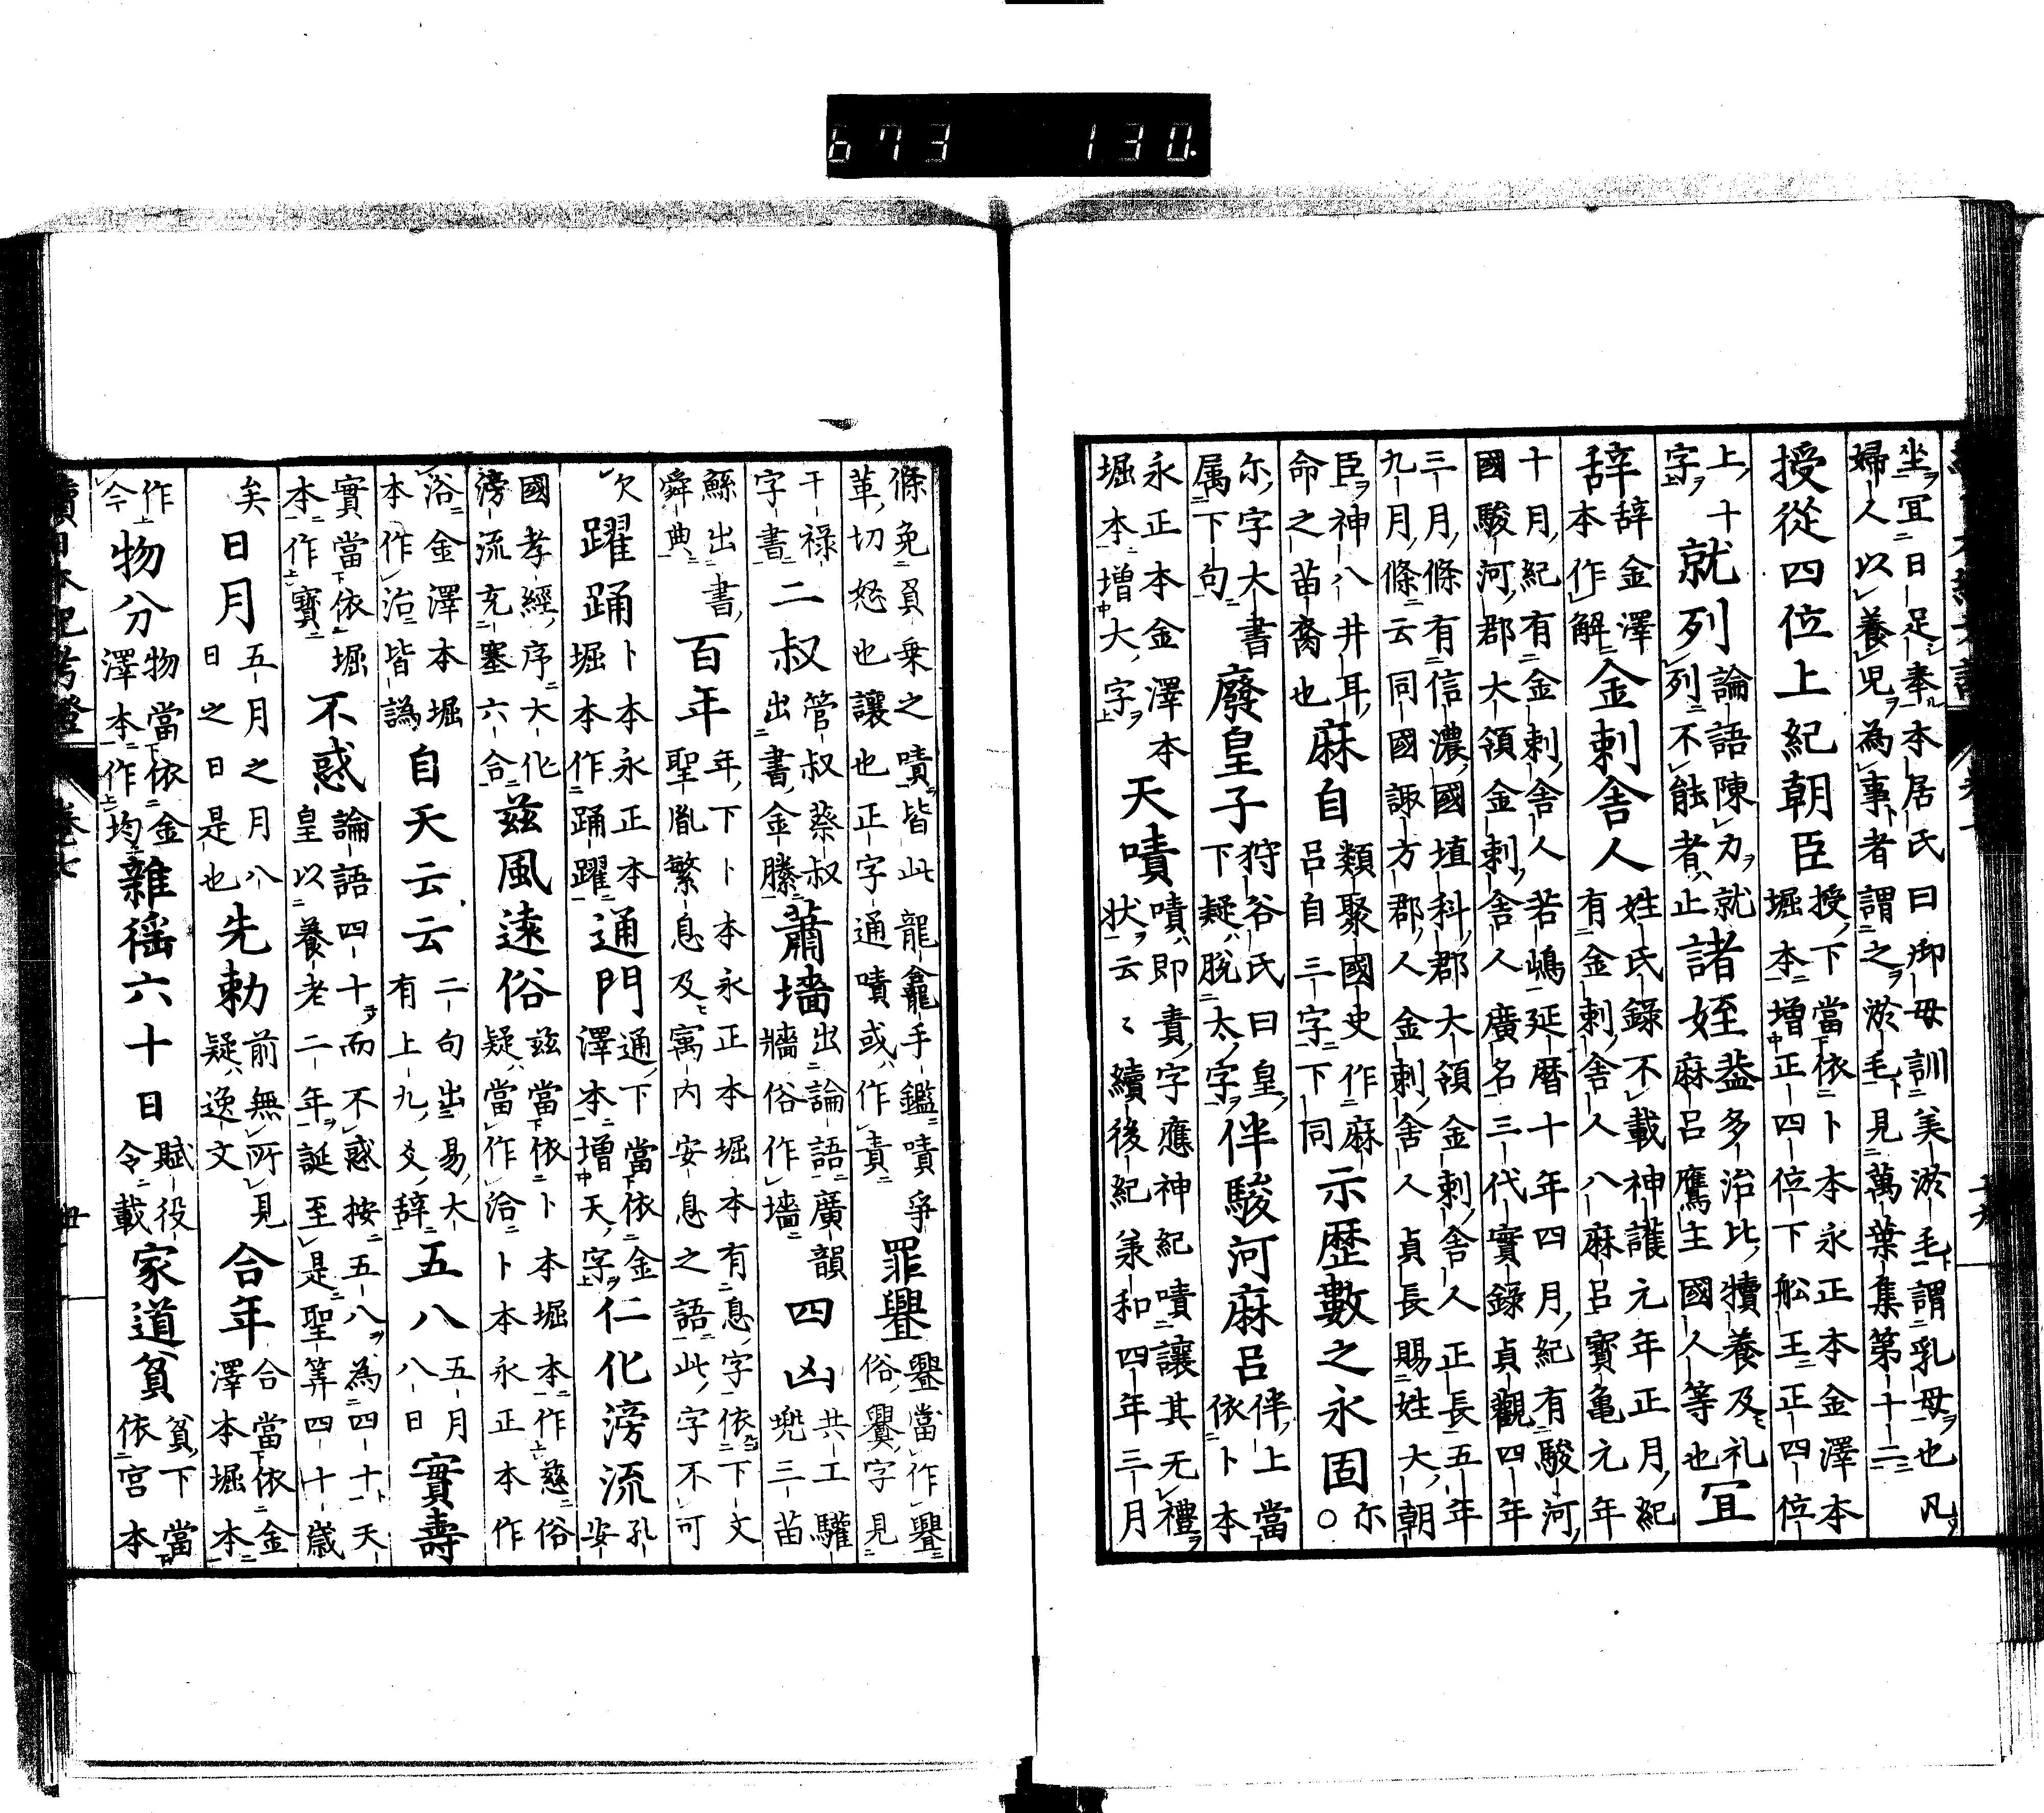 673 130.
坐宜日足奉本居氏曰御母訓美淤毛謂乳母也凡
婦人以養児為事者謂之淤毛見萬葉集第十二
授從四位上紀朝臣授下當依卜本永正本金澤本
堀本増正四位下舩王正四位
上十字就列論語陳力就列不能者止諸姪盗多治比犢養及礼麻呂鷹主國人等也宜
辞辞金澤本作解金刺舎人姓氏錄不載神護元年正月紀
有金刺舎人八麻呂寶亀元年
十月紀有金刺舎人若嶋延暦十年四月紀有駿河
國駿河郡大領金刺舎人廣名三代實錄貞觀四年
三月條有信濃國埴科郡大領金刺舎人正長五年
九月條云同國諏方郡人金刺舎人貞長賜姓大朝
臣神八井耳命之苗裔也麻自類聚國史作麻呂自三字下同示歴數之永固○尓
尓字大書属下句廢皇子狩谷氏曰皇下疑脱太字伴駿河麻呂伴上當依卜本
永正本金澤本堀本増大字天嘖嘖即責字應神紀嘖讓其无禮
状云〻續後紀羕和四年三月
條免負乗之嘖皆此龍龕手鑑嘖爭
革切怒也讓也正字通嘖或作責罪舋舋當作舋俗釁字見
干禄字書二叔管叔蔡叔出書金縢蕭墻出論語廣韻牆俗作墻四凶共工驩兜三苗
鯀出書舜典百年年下卜本永正本堀本有息字依下文
聖胤繁息及寓内安息之語此字不可
欠躍踊卜本永正本堀本作踊躍通門通下當依金澤本増天字仁化滂流孔安
國孝經序大化滂流充塞六合茲風遠俗茲當依卜本堀本作慈俗疑當作洽卜本永正本作
浴金澤本堀本作治皆譌自天云云二句出易大有上九爻辞五八五月八日實壽
實當依堀本作寶不惑論語四十而不惑按五八為四十天
皇以養老二年誕至是聖筭四十歳
矣日月五月之月八日之日是也先勅前無所見疑逸文合年合當依金澤本堀本
作今物分物當依金澤本作均雜徭六十日賦役令載家道貧貧下當依宮本
續日本紀考證 卷七